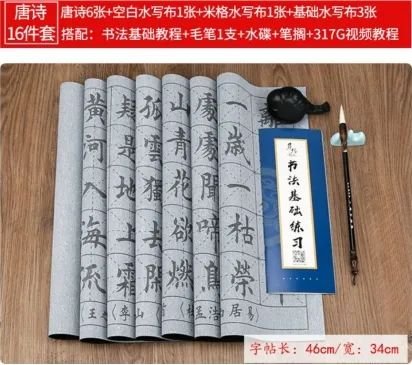 唐诗
16件套
唐诗6张+空白水写布1张+米格水写布1张+基础水写布3张
搭配：书法基础教程+毛笔1支+水碟+笔搁+317G视频教程
一歲一枯榮
處處聞啼鳥
山青花欲燃
孤雲獨去閑
疑是地上霜
黃河入海流
书法基础练习
字帖长：46cm/宽：34cm